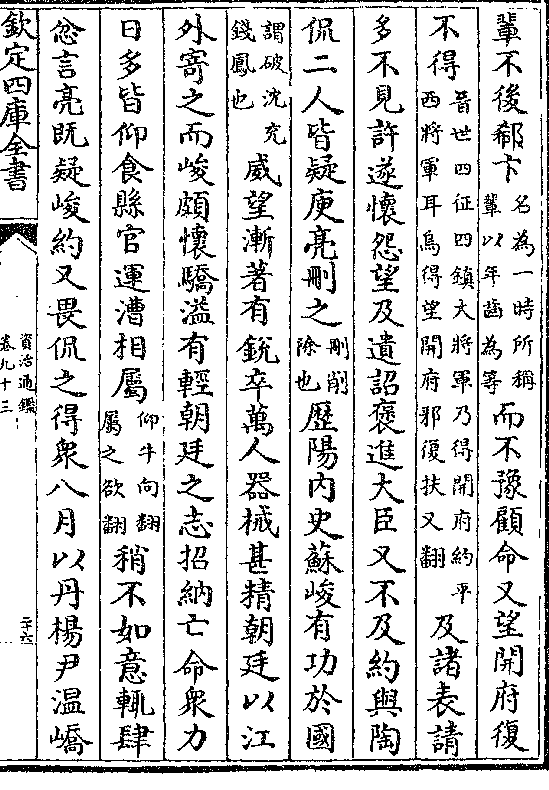 輩不後郗卞名為一時所稱輩以年齒為等而不豫顧命又望開府復
不得晉世四征四鎮大將軍乃得開府約平西將軍耳烏得望開府邪復扶又翻及諸表請
多不見許遂懷怨望及遺詔褒進大臣又不及約與陶
侃二人皆疑庾亮刪之刪削除也歷陽內史蘇峻有功於國
謂破沈充錢鳳也威望漸著有銳卒萬人器械甚精朝廷以江
外寄之而峻頗懷驕溢有輕朝廷之志招納亡命衆力
日多皆仰食縣官運漕相屬仰牛向翻屬之欲翻稍不如意輒肆
忿言亮既疑峻約又畏侃之得衆八月以丹楊尹温嶠
欽定四庫全書
資治通鑑
卷九十三
二十六